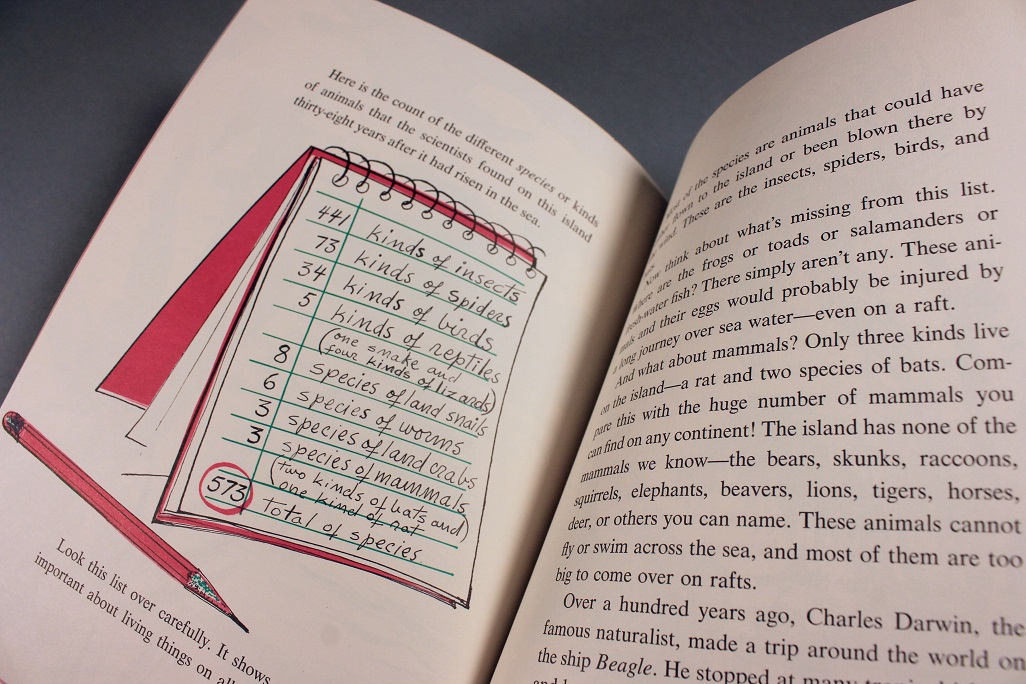 Here is the count of the different species or kinds
of animals that the scientists found on this island
thirty-eight years after it had risen in the sea.
441 kinds of insects
73 kinds of spiders
34 kinds of birds
5 kinds of reptiles
(one snake and
four kinds of lizards)
8 species of land snails
6 species of worms
3 species of land crabs
3 species of mammals
(two kinds of bats and
one kind of rat)
573 total of species.
Look this list over carefully. It shows
important about living things on
of the species are animals that could have
flown to the island or been blown there by
wind. These are the insects, spiders, birds, and
Now think about what's missing from this list.
where are the frogs or toads or salamanders or
fresh-water fish? There simply aren't any. These ani-
mals and their eggs would probably be injured by
a long journey over sea water—even on a raft.
And what about mammals? Only three kinds live
on the island—a rat and two species of bats. Com-
pare this with the huge number of mammals you
can find on any continent! The island has none of the
mammals we know—the bears, skunks, raccoons,
squirrels, elephants, beavers, lions, tigers, horses,
deer, or others you can name. These animals cannot
fly or swim across the sea, and most of them are too
big to come over on rafts.
Over a hundred years ago, Charles Darwin, the
famous naturalist, made a trip around the world on
the ship Beagle. He stopped at many